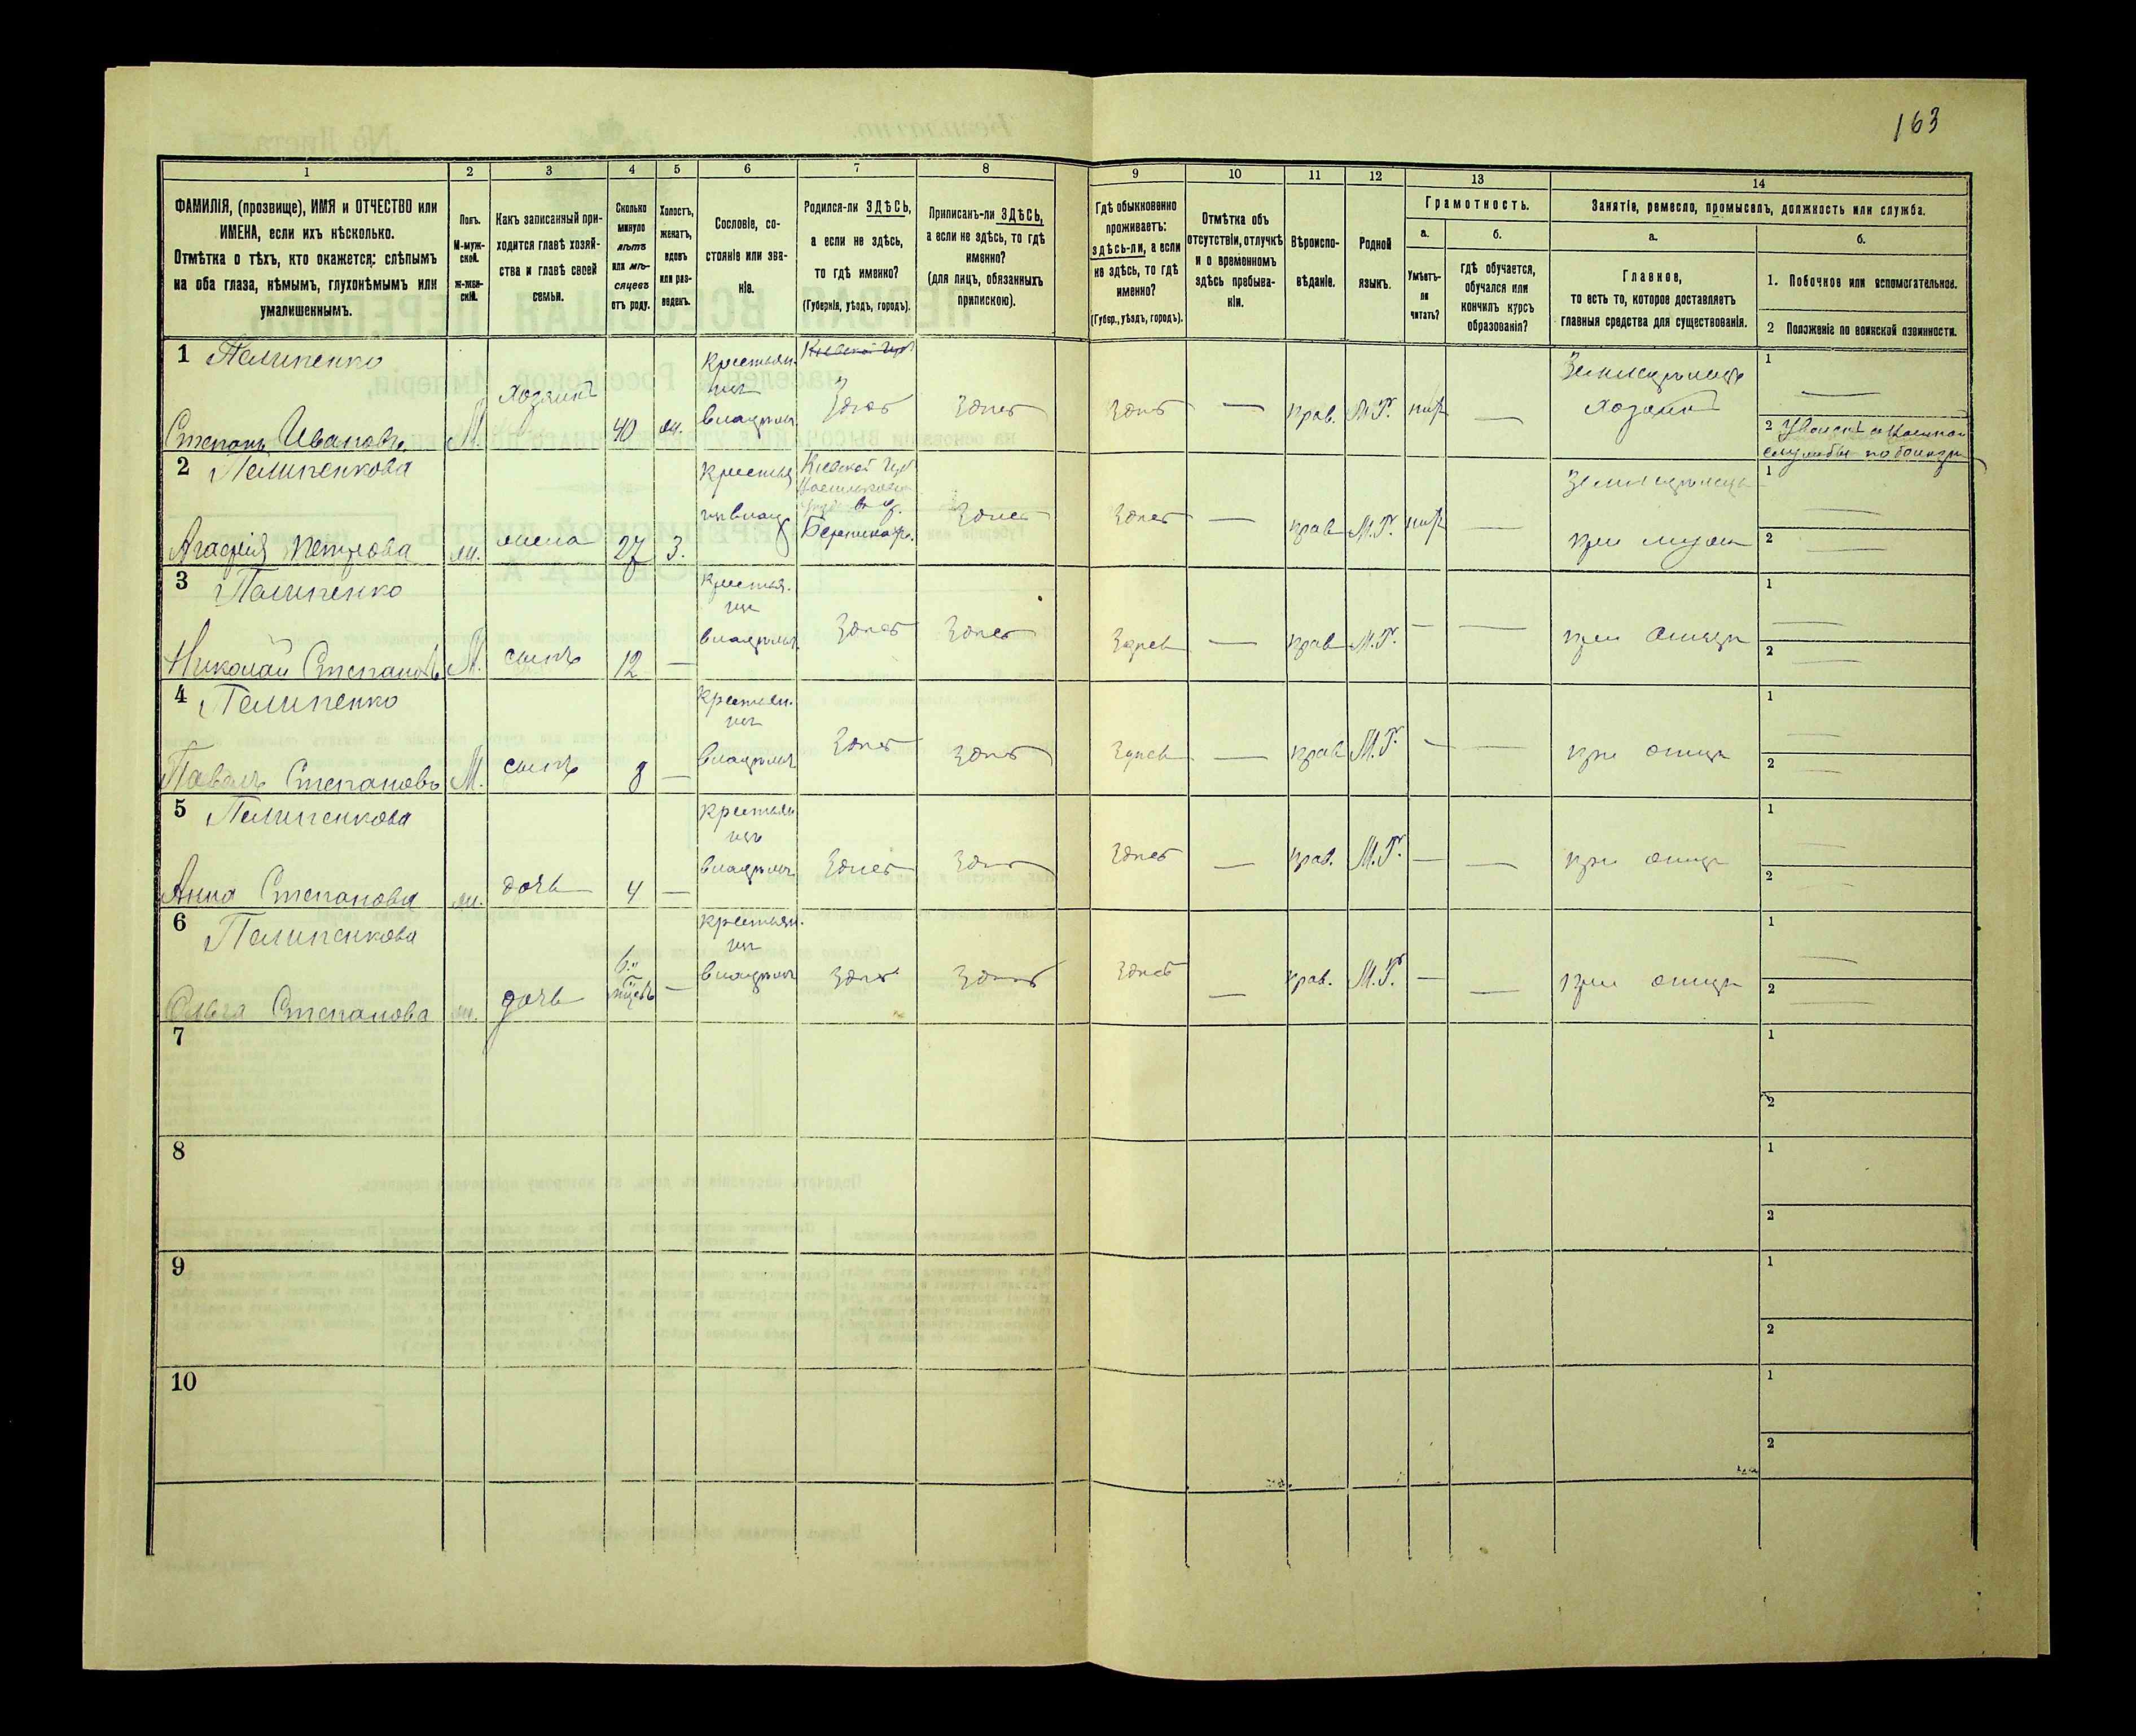 163
1
2
3
4
5
6
7
8
9
10
11
12
13
14
ФАМИЛІЯ, (прозвище), ИМЯ и ОТЧЕСТВО или
ИМЕНА, если ихъ нѣсколько.
Отмѣтка о тѣхъ, кто окажется: слѣпымъ
на оба глаза, нѣмымъ, глухонѣмымъ или
умалишеннымъ.
Полъ.
М-муж-
ской.
ж-жен-
скій.
Какъ записанный при-
ходится главѣ хозяй-
ства и главѣ своей
семьи.
Сколько
минуло
лѣтъ
или мѣ-
сяцевъ
отъ роду.
Холостъ,
женатъ,
вдовъ
или раз-
веденъ.
Сословіе, со-
стояніе или зва-
ніе.
Родился-ли ЗДѢСЬ,
а если не здѣсь,
то гдѣ именно?
(Губернія, уѣздъ, городъ).
Приписанъ-ли ЗДѢСЬ,
а если не здѣсь, то гдѣ
именно?
(для лицъ, обязанныхъ
припискою).
Гдѣ обыкновенно
проживаетъ:
здѣсь-ли, а если
не здѣсь, то гдѣ
именно?
(Губер., уѣздъ, городъ).
Отмѣтка объ
отсутствіи, отлучкѣ
и о временномъ
здѣсь пребыва-
ніи.
Вѣроиспо-
вѣданіе.
Родной
языкъ.
Грамотность.
а.
Умѣетъ-
ли
читать?
б.
гдѣ обучается,
обучался или
кончилъ курсъ
образованія?
Занятіе, ремесло, промыселъ, должность или служба.
а.
Главное,
то есть то, которое доставляетъ
главныя средства для существованія.
б.
1. Побочное или вспомогательное.
2 Положеніе по воинской повинности.
1 Пелипенко
Степанъ Ивановъ
М.
хозяинъ
40
ж.
Крестьян.
владѣлец
Здесь
Здесь
Здесь
—
прав.
М.Р.
—
хозяин
1
—
2
2 Пелипенкова
Агафія Петрова
ж.
жена
27
З.
Кіевской Губ
Здесь
Здесь
—
прав
М.Р.
при мужи
1
—
2
—
3 Пелипенко
Николай Степановъ
М.
сынъ
12
—
Здесь
Здесь
Здесь
—
прав
М.Р.
—
—
при отце
1
—
2
—
4 Пелипенко
Павелъ Степановъ
М.
сынъ
8
—
Здесь
Здесь
Здесь
—
прав
М.Р.
—
—
при отце
1
—
2
—
5 Пелипенкова
Анна Степанова
ж.
дочь
4
—
Здесь
Здесь
Здесь
—
прав.
М.Р.
—
—
при отце
1
—
2
—
6 Пелипенкова
Ольга Степанова
ж.
дочь
6
—
Здесь
Здесь
Здесь
—
прав.
М.Р.
—
—
при отце
1
—
2
—
7
1
2
8
1
2
9
1
2
10
1
2